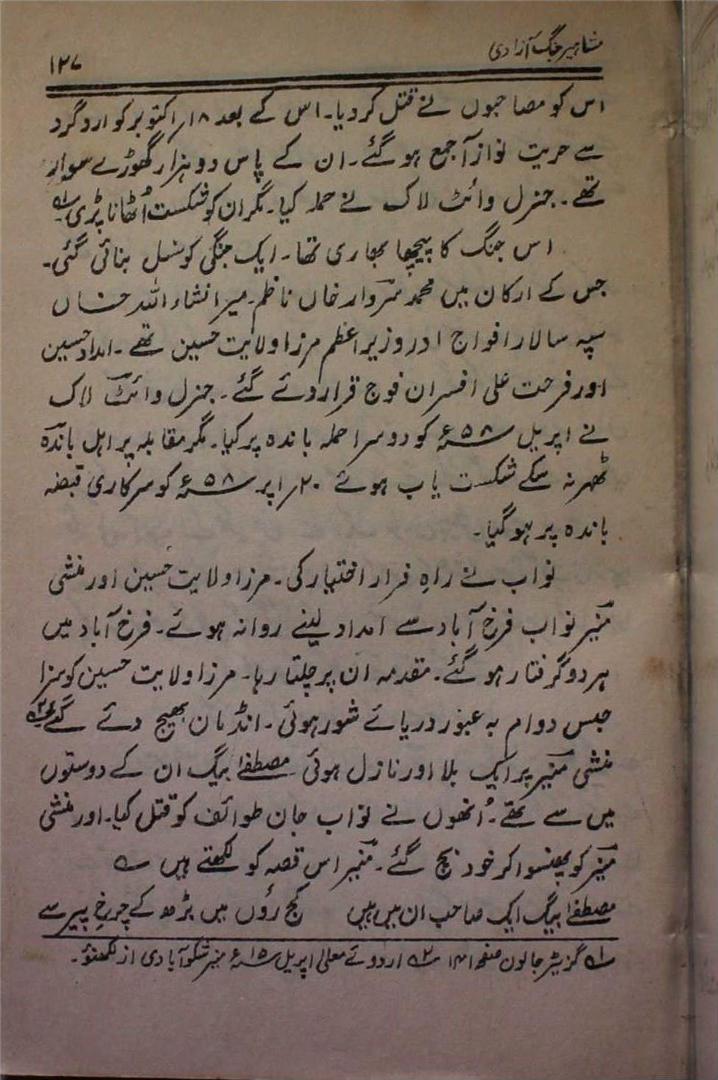 مشاہیر جنگ آزادی
۱۲۷
اس کو مصاحبوں نے قتل کر دیا۔ اس کے بعد ۱۸؍ اکتوبر کو ارد گرد
سے حریت نواز آ جمع ہو گئے۔ ان کے پاس دو ہزار گھوڑے سوار
تھے۔ جنرل وائٹ لاک نے حملہ کیا۔ مگر ان کو شکست اُٹھانا پڑی ۱؎
اس جنگ کا پیچھا بھاری تھا۔ ایک جنگی کونسل بنائی گئی۔
جس کے ارکان میں محمد سردار خاں ناظم۔ میر انشاء اللہ خاں
سپہ سالار افواج اور وزیر اعظم مرزا ولایت حسین تھے۔ امداد حسین
اور فرحت علی افسران فوج قرار دئے گئے۔ جنرل وائٹ لاک
نے اپریل ۵۸ء کو دوسرا حملہ باندہ پر کیا۔ مگر مقابلہ پر اہل باندہ
ٹھہر نہ سکے شکست یاب ہوئے ۲۰؍ اپر ۵۸ء کو سرکاری قبضہ
باندہ پر ہو گیا۔
نواب نے راہِ فرار اختیار کی۔ مرزا ولایت حسین اور منشی
منیر نواب فرخ آباد سے امداد لینے روانہ ہوئے۔ فرخ آباد میں
ہر دو گرفتار ہو گئے۔ مقدمہ ان پر چلتا رہا۔ مرزا ولایت حسین کو سزا
حبس دوام بہ عبور دریائے شور ہوئی۔ انڈمان بھیج دئے گئے ۲؎
منشی منیر پر ایک بلا اور نازل ہوئی مصطفےٰ بیگ ان کے دوستوں
میں سے تھے۔ اُنھوں نے نواب جان طوائف کو قتل کیا۔ اور منشی
منیر کو پھنسوا کر خود بچ گئے۔ منیر اس قصہ کو لکھتے ہیں ؎
مصطفےٰ بیگ ایک صاحب ان میں ہیں کج رؤں میں بڑھ کے چرخِ پیر سے
۱؎ گزیٹیر جالون صفحہ ۱۴۱ ۲؎ اردوئے معلیٰ اپریل ۱۵ء منیر شکوہ آبادی از لکھنؤ۔